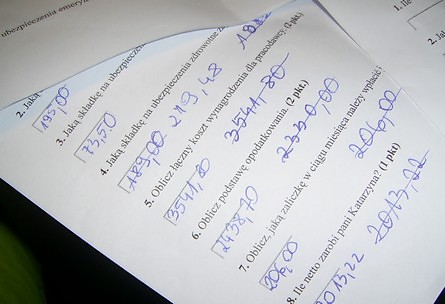 ubezpieczenia emeryta
1. Ile
2. Jaką
195,00
3. Jaką składkę na ubezpieczenie
73,50
4. Jaką składkę na ubezpieczenia zdrowotne
189,00 219,48
5. Oblicz łączny koszt wynagrodzenia dla pracodawcy. (2 pkt.)
3541,80 3541,80
6. Oblicz podstawę opodatkowania. (2 pkt.)
2438,70 2330,00
7. Oblicz, jaką zaliczkę w ciągu miesiąca należy wpłacić
206,00 206,00
8. Ile netto zarobi pani Katarzyna? (1 pkt)
2013,22 2013,22